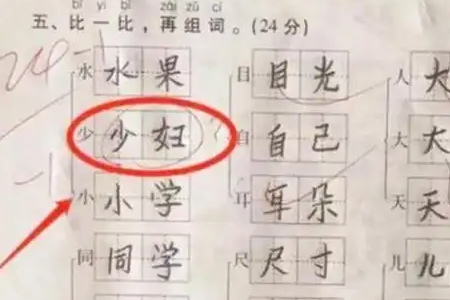 bǐ yī bǐ zài zǔ cí
五、比一比，再组词。(24分)
24-1
水 水果 目 目光 人 大
少 少妇 自 自己 大 大
-1
小 小学 耳 耳朵 天 天
同 同学 尺 尺寸 儿 儿